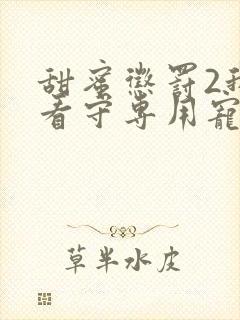 甜蜜懲罰2我
看守專用寵
草半水皮